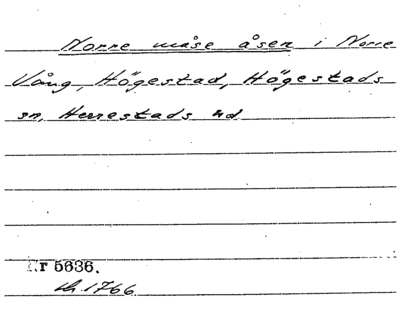 Norre måse åsen i Norre
Vång, Högestad, Högestads
sn, Herrestads hd
Nr 5636.
LM 1766